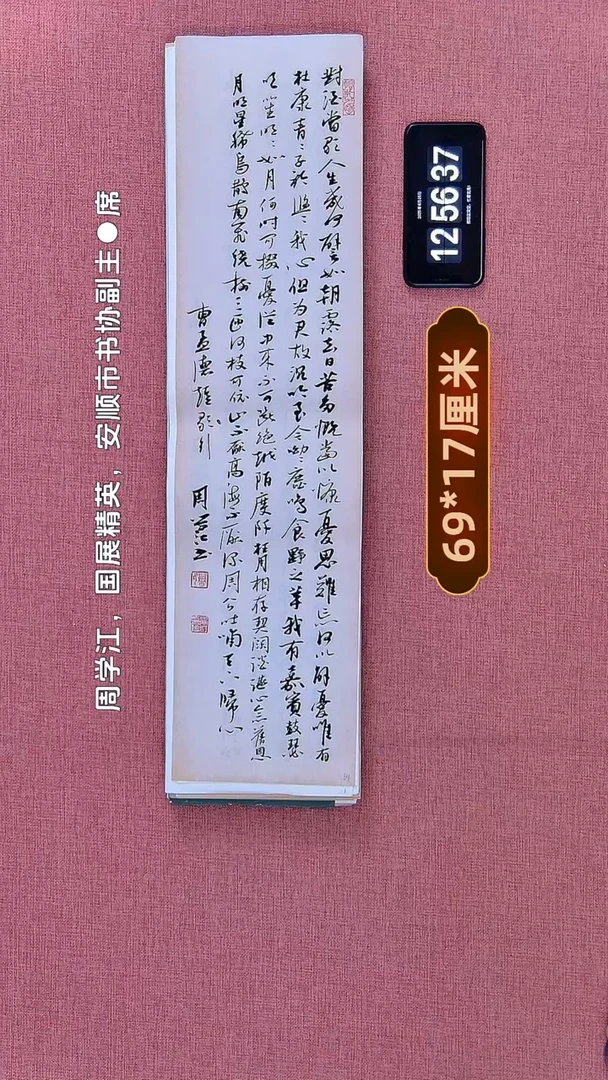 對酒當歌人生幾何譬如朝露去日苦多慨當以慷憂思難忘何以解憂唯有
杜康青〻子衿悠〻我心但为君故沉吟至今呦〻鹿鳴食野之苹我有嘉賓鼓瑟
吹笙明〻如月何時可掇憂從中來不可斷絕越陌度阡枉用相存契闊談讌心念舊恩
月明星稀烏鵲南飛繞樹三匝何枝可依山不厭高海不厭深周公吐哺天下歸心
曹孟德短歌行 周学江书
周学江，国展精英，安顺市书协副主●席
12 56 37
69*17厘米